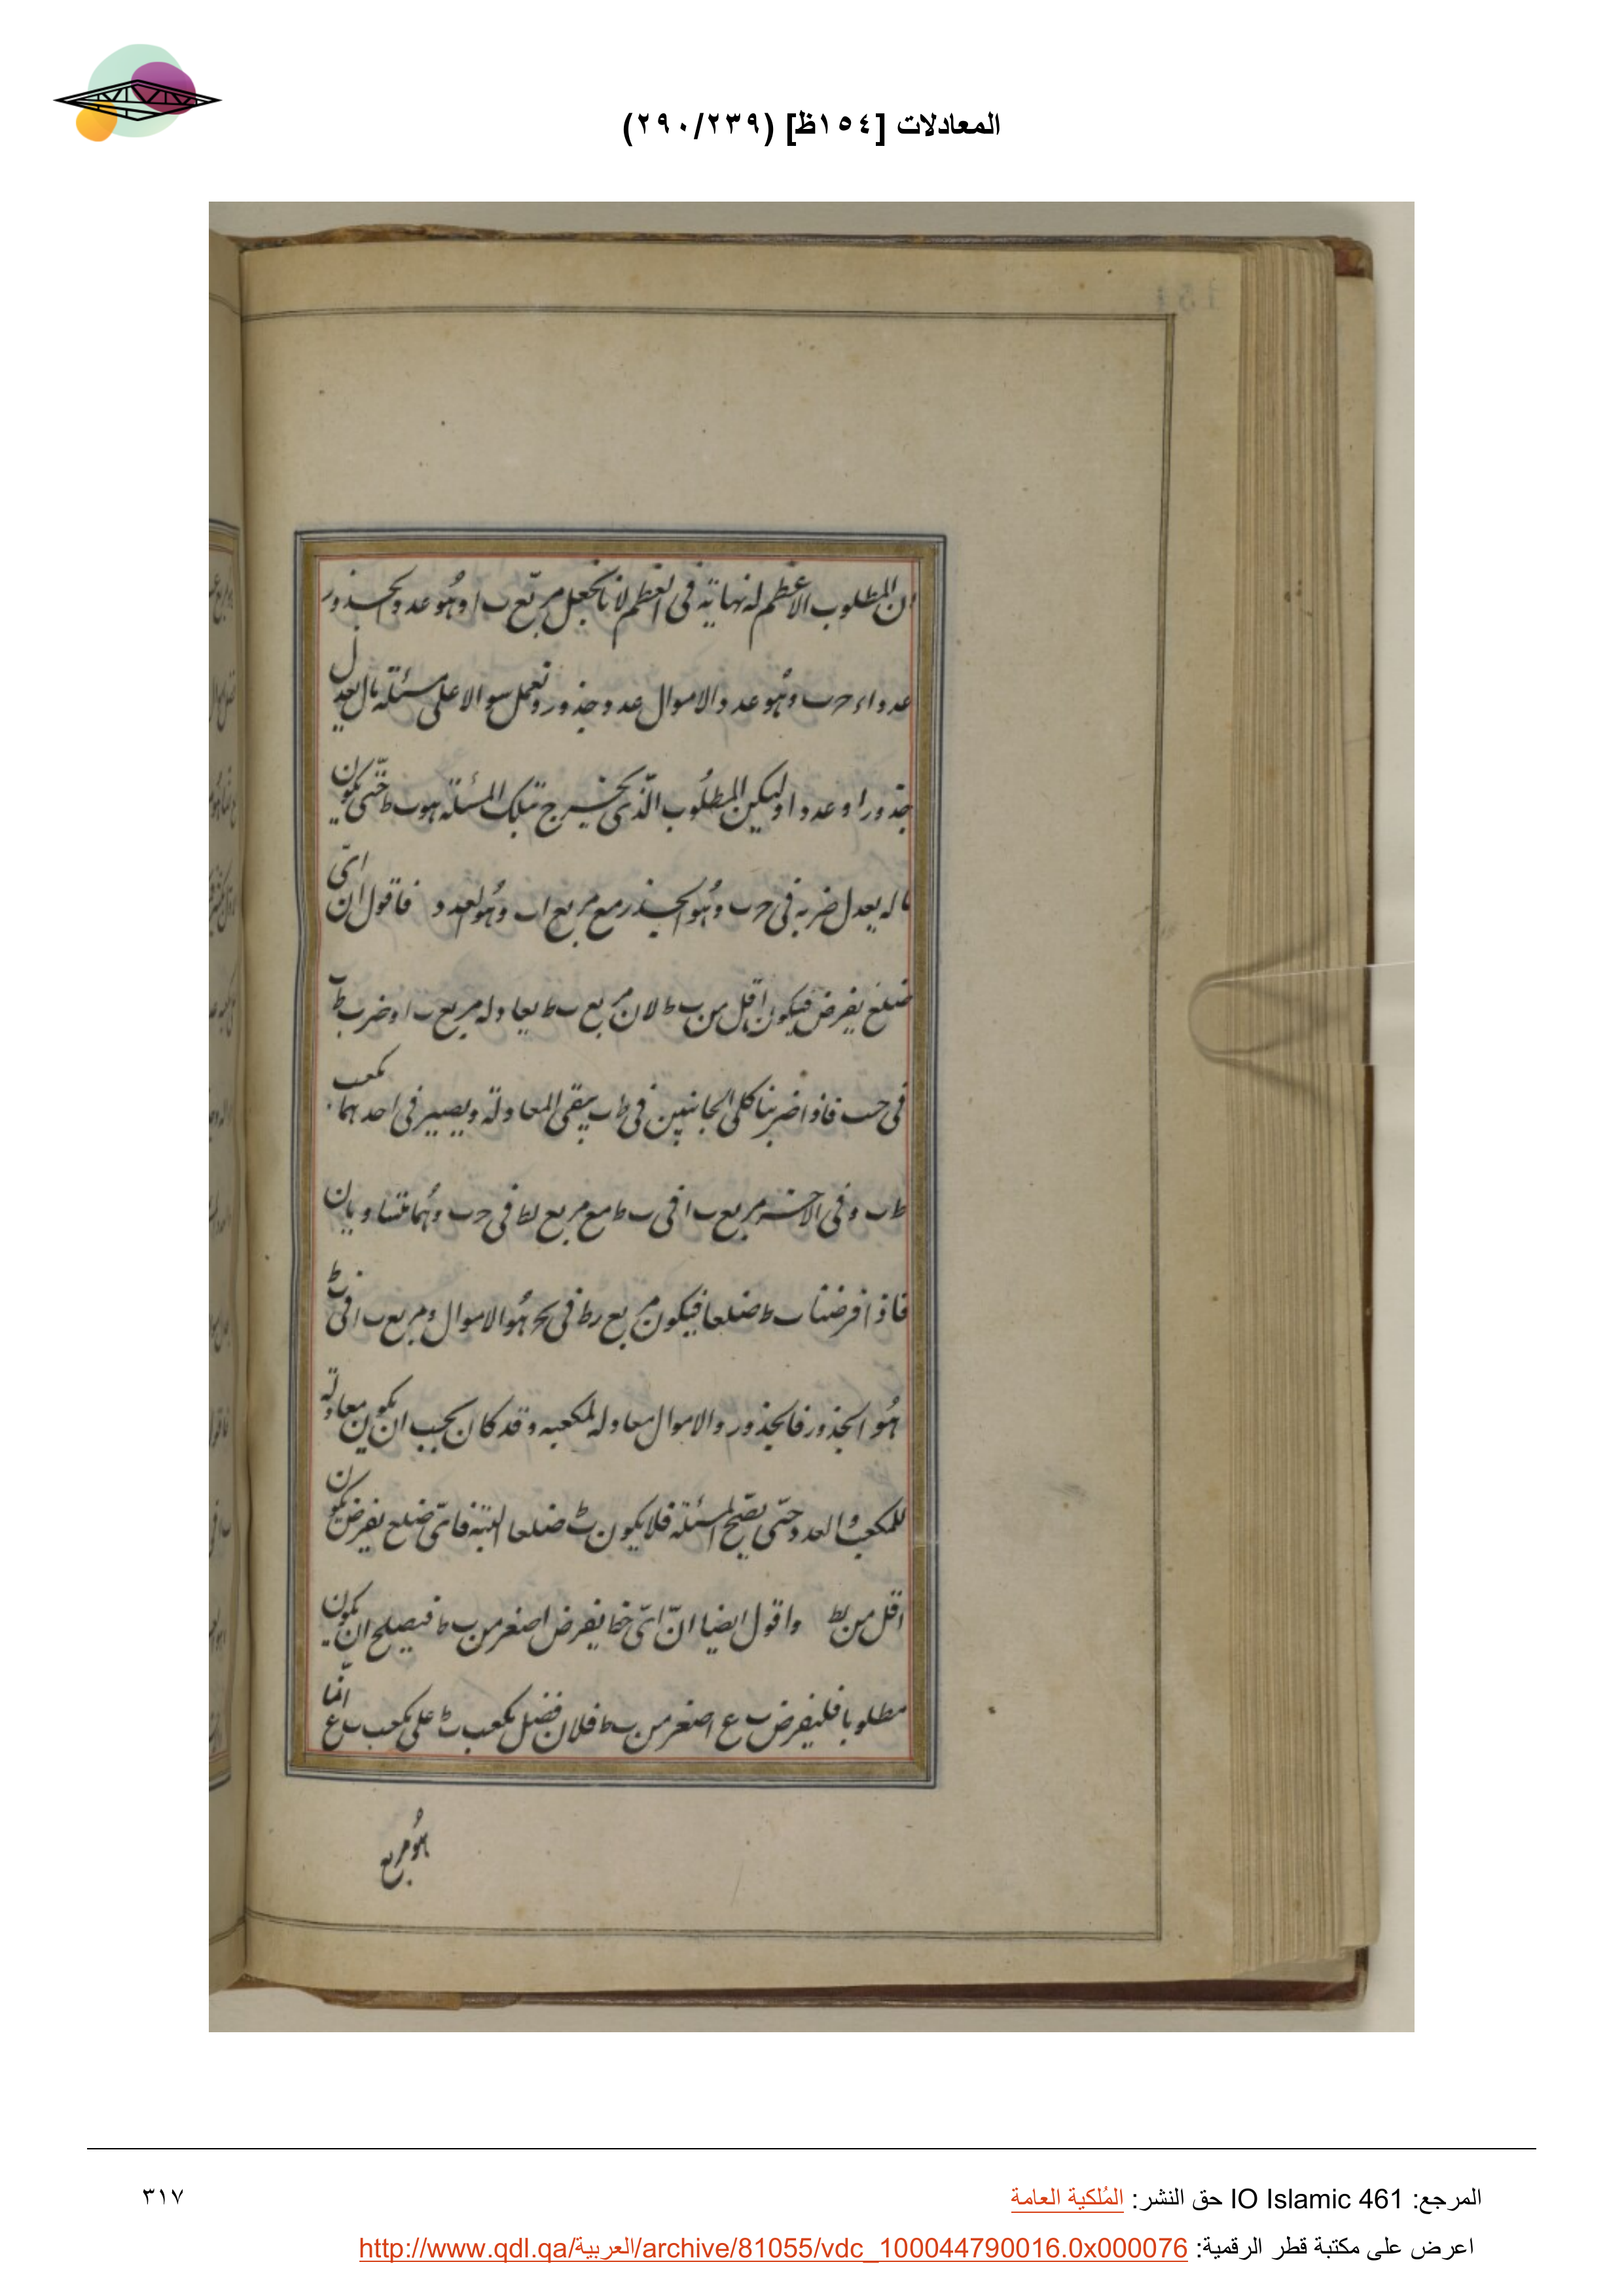 المعادلات [١٥٤ظ] (٢٩٠/٢٣٩)
ان المطلوب الاعظم له نهاية فى العظم لانا نجعل مربّع ب ا وهُو عدد الجذور
عددا و ح ب وهُو عدد الاموال عدد جذور ونعمل سوالا على مسئلة مال يعدل
جذورا وعددا وليكن المطلُوب الّذى يخرج بتلك المسئلة هو ب ط حتّى يكون
ماله يعدل ضربه فى ح ب وهُو الجذر مع مربع ا ب وهُو العدد فاقول ان اىّ
ضلع يفرض فيكون اقل من ب ط لان مربع ب ط يعادله مربع ب ا وضرب ط ب
فى ح ب فاذا ضربنا كلى الجانبين فى ط ب يبقى المعادلة ويصير فى احدهما مكعب
ط ب وفى الاخر مربع ب ا فى ب ط مع مربع ب ط فى ح ب وهُما متساويان
فاذا فرضنا ب ط ضلعا فيكون مربع ب ط فى ب ح هُو الاموال ومربع ب ا فى ب ط
هُو الجذور فالجذور والاموال معادله لمكعبه وقد كان يجب ان يكون معادلة
للمكعب والعدد حتّى يصّح المسئلة فلا يكون ب ط ضلعا البتة فاىّ ضلع يفرض يكون
اقل من ب ط واقول ايضا انّ اىّ خط يفرض اصغر من ب ط فيصلح ان يكون
مطلوبا فليفرض ب ع اصغر من ب ط فلان فضل مكعب ب ط على مكعب ب ع انّما
هُو مربع
المرجع: IO Islamic 461 حق النشر: المُلكية العامة
٣١٧
اعرض على مكتبة قطر الرقمية: http://www.qdl.qa/العربية/archive/81055/vdc_100044790016.0x000076